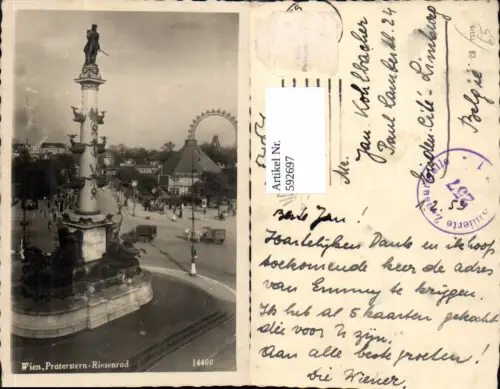 Wien, Praterstern-Riesenrad
14400
Artikel Nr.
592697
Mr. Jan Kohlbacher
Paul Lambert 24
Eijsden-Cité-Limburg
Belgie
257
1.2.55
Beste Jan!
Hartelijken Dank en ik hoop
toekomende keer de adres
van Emmy te krijgen.
Ik hub al 5 kaarten gekocht
die voor U zijn.
Aan alle beste groeten!
Die Wiener